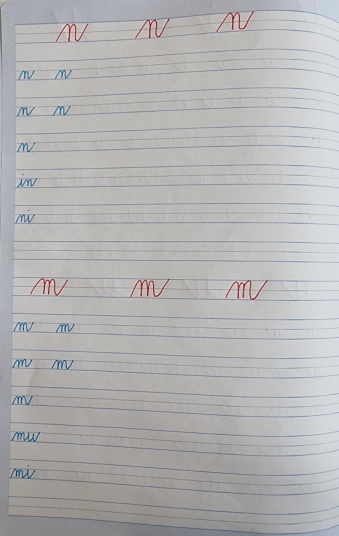 n n n
n n
n n
n
in
ni
m m m
m m
m m
m
mu
mi